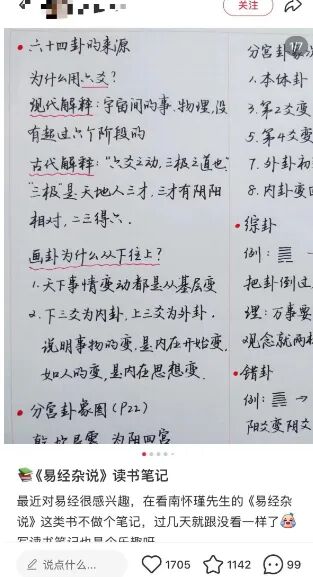 关注
1/7
• 六十四卦的来源
为什么用六爻?
现代解释:宇宙间的事.物理,没
有超过六个阶段的
古代解释:“六爻之动,三极之道也”
“三极”是天地人三才,三才有阴阳
相对,二三得六.
画卦为什么从下往上?
1.天下事情变动都是从基层变
2.下三爻为内卦,上三爻为外卦.
说明事物的变,是内在开始变,
如人的变,是内在思想变.
• 分宫卦象图(P22)
分宫卦象次
1.本体卦
3.第2爻变
5.第4爻变
7.外卦初
8.内卦变回
• 综卦
例:
把卦倒过
理:万事要
观念就两样
• 错卦
例: →
阳爻变阴爻
📚《易经杂说》读书笔记
最近对易经很感兴趣,在看南怀瑾先生的《易经杂
说》这类书不做个笔记,过几天就跟没看一样了
说点什么...
1705
1142
99